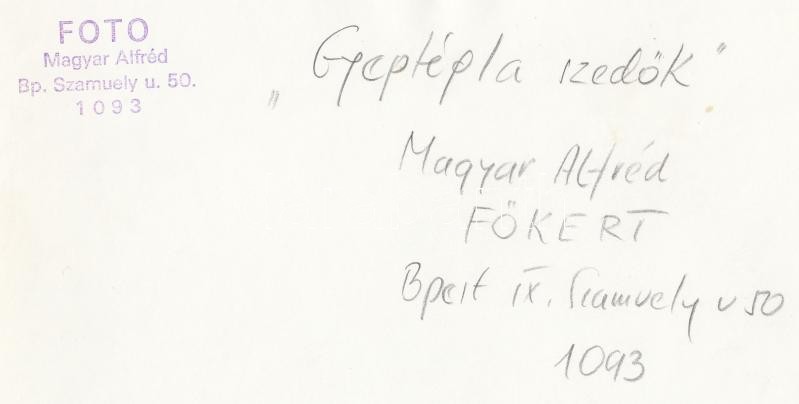 FOTO
Magyar Alfréd
Bp. Szamuely u. 50.
1093
„Gyeptépla izedők"
Magyar Alfréd
FŐKERT
Bpest IX. Szamuely u 50
1093